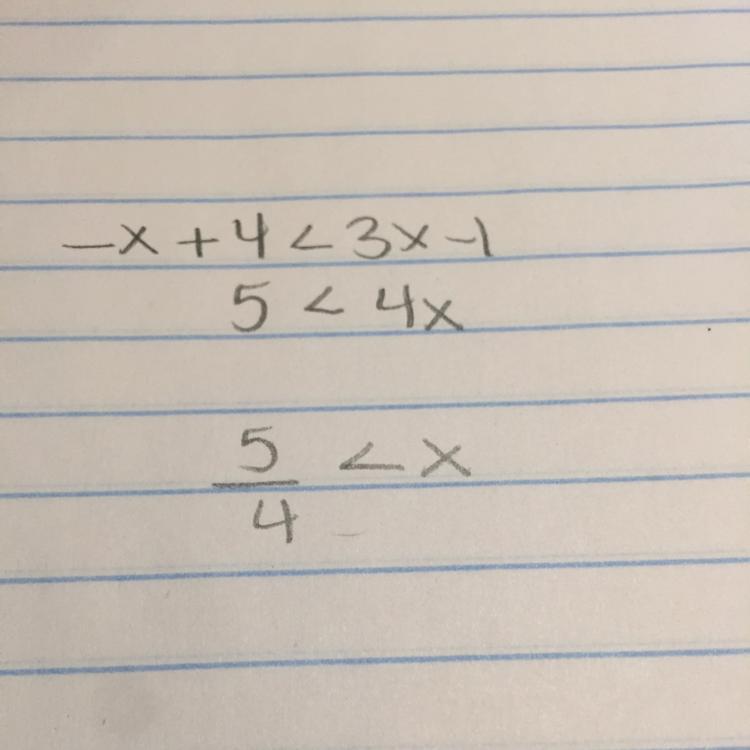 -x + 4 < 3x - 1
5 < 4x
5/4 < x